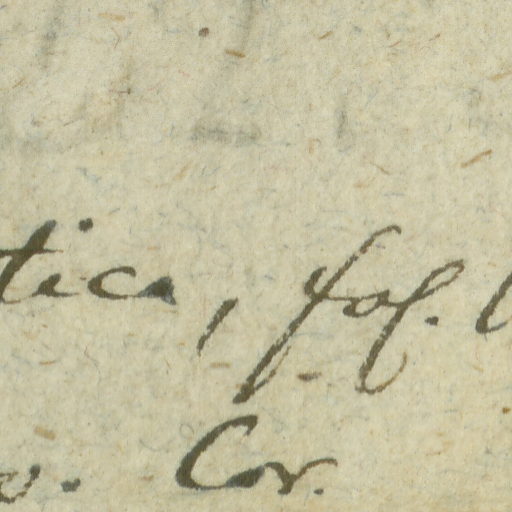 tica, fol.
v. Cor.